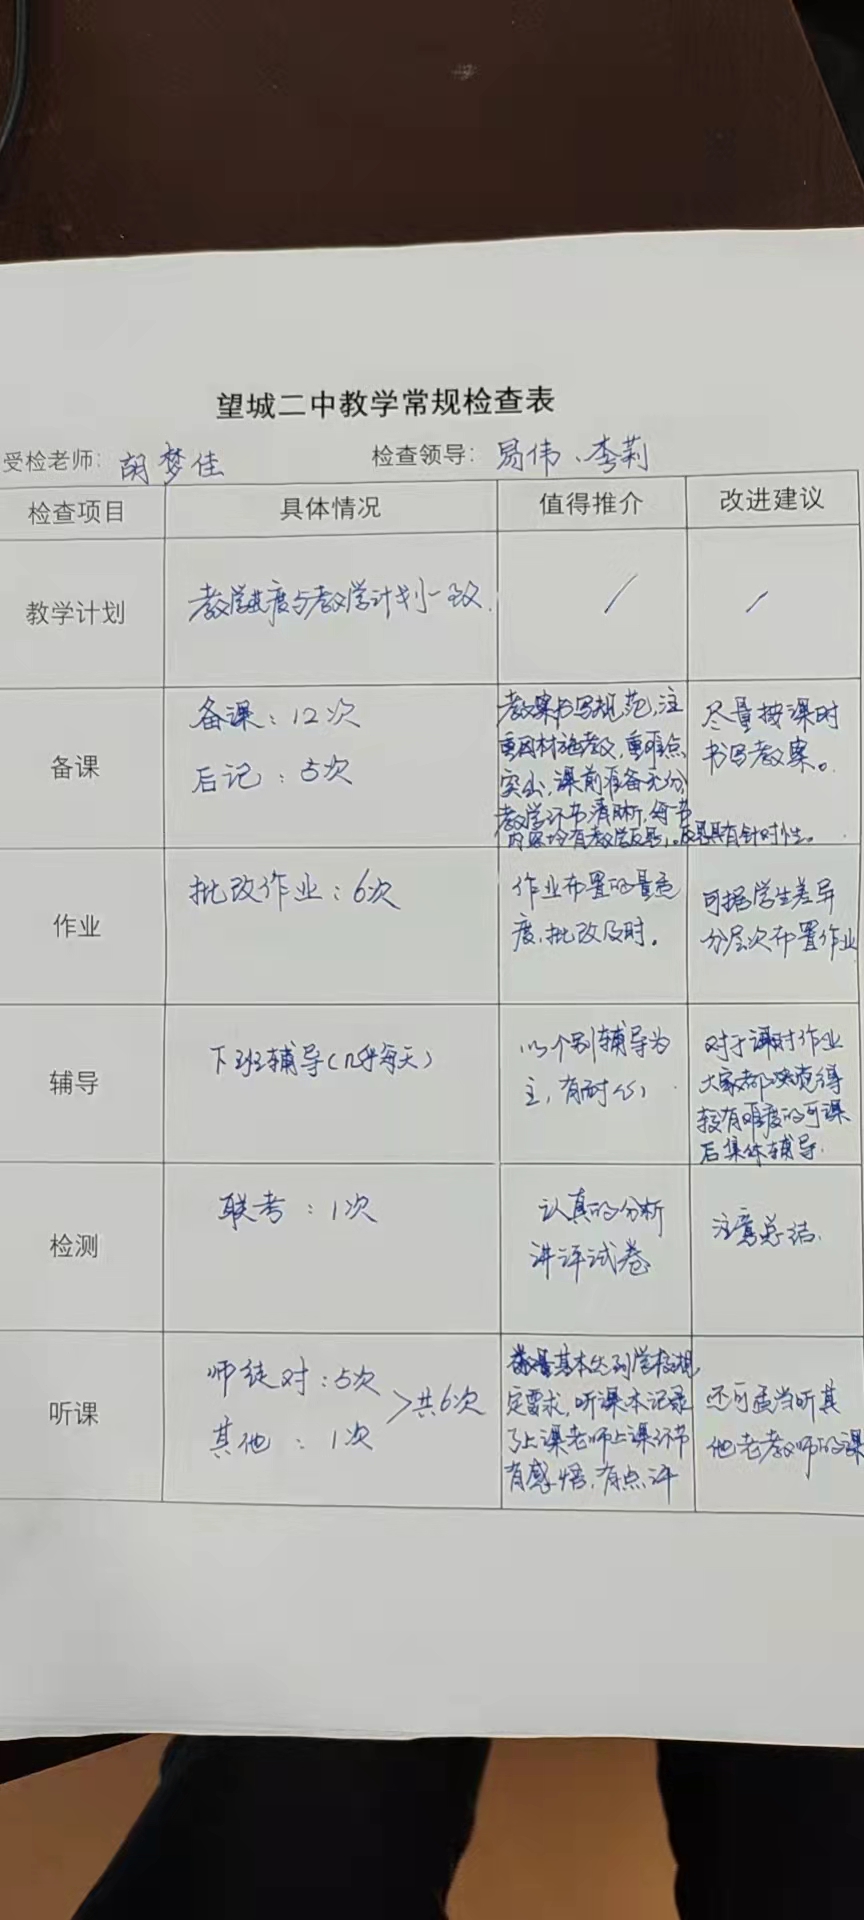 望城二中教学常规检查表
受检老师：胡梦佳 检查领导：易伟、李莉
检查项目 具体情况 值得推介 改进建议
教学计划 教学进度与教学计划一致. / /
备课
备课：12次
后记：5次
教案书写规范，注
重因材施教，重难点
突出，课前准备充分，
教学环节清晰，每节
内容均有教学反思，反思具有针对性。
尽量按课时
书写教案。
作业
批改作业：6次
作业布置的量适
度，批改及时。
可据学生差异
分层次布置作业
辅导
下班辅导（几乎每天）
以个别辅导为
主，有耐心
对于课时作业
大家都觉得
较有难度的可课
后集体辅导.
检测
联考：1次
认真的分析
讲评试卷
注意总结.
听课
师徒对：5次
其他：1次
>共6次
数量基本达到学校规
定要求，听课本记录
了上课老师上课环节
有感悟，有点评
还可适当听其
他老教师的课